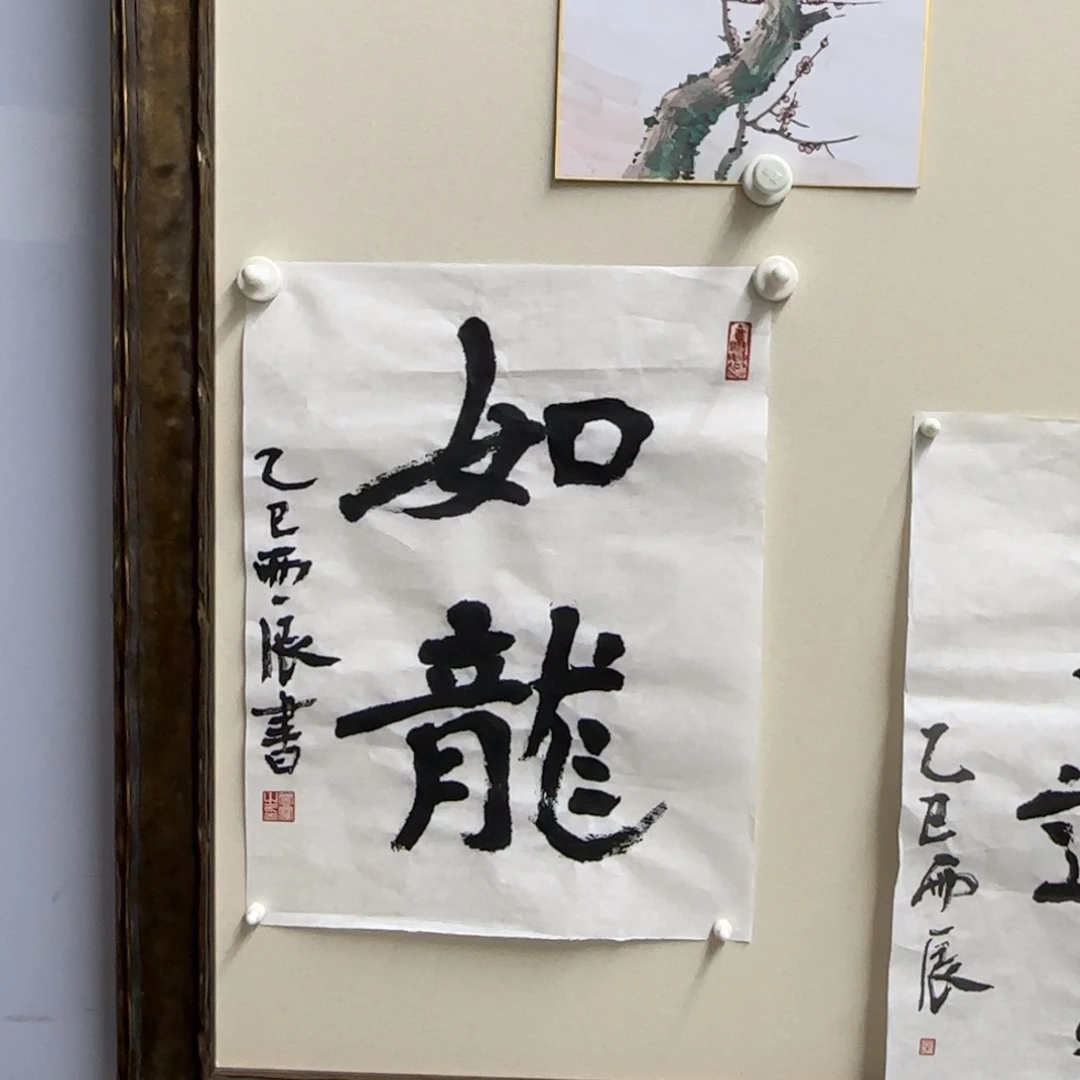 如龍
乙巳雨辰書
乙巳雨辰